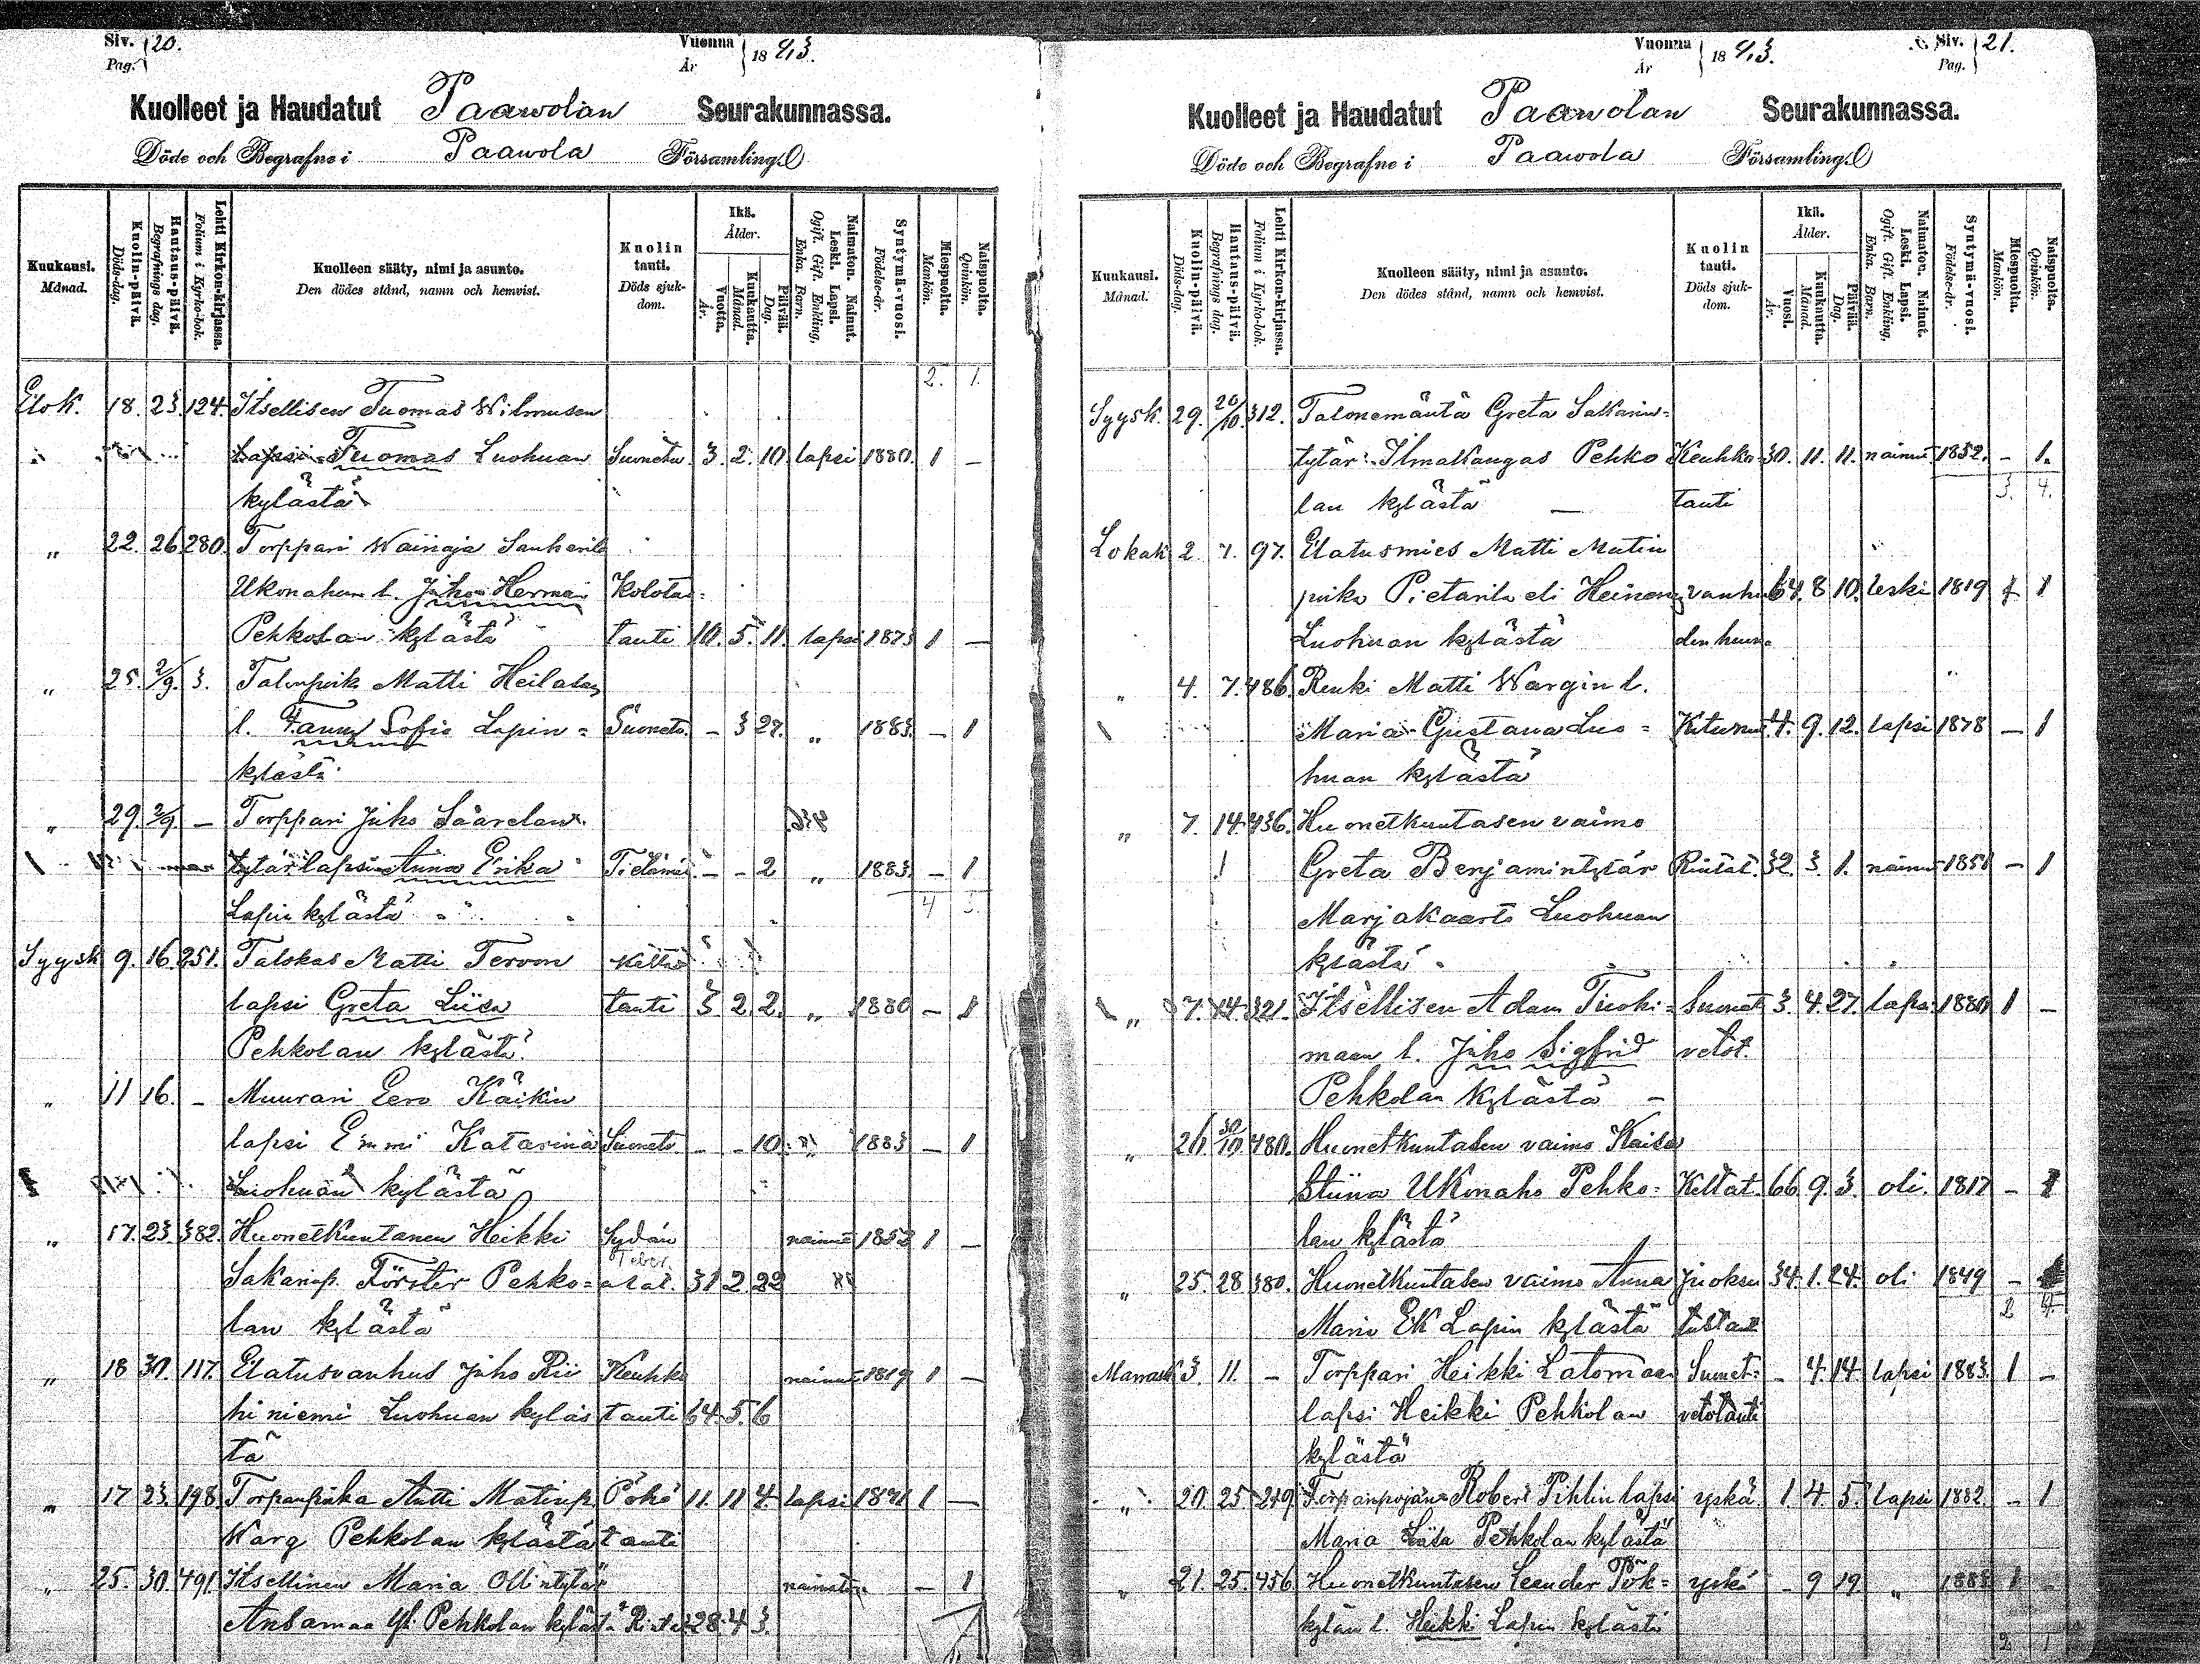 Siv. 20.
Pag.
Vuonna 1883.
År
Kuolleet ja Haudatut Paawolan Seurakunnassa.
Döde och Begrafne i Paawola Församling
Kuukausi. Månad.
Kuolin-päivä. Döds-dag.
Hautaus-päivä. Begrafnings dag.
Lehti Kirkon-kirjassa. Folium i Kyrko-bok.
Kuolleen sääty, nimi ja asunto.
Den dödes stånd, namn och hemvist.
Kuolin tauti. Döds sjukdom.
Ikä. Ålder.
Vuotta. År.
Kuukautta. Månad.
Päivää. Dag.
Naimaton. Nainut. Leski. Lapsi. Ogift. Gift. Enkling. Enka. Barn.
Syntymä-vuosi. Födelse-år.
Miespuolta. Mankön.
Naispuolta. Qvinkön.
2. 1.
Elok. 18. 23. 124. Itsellisen Tuomas Wilmusen
lapsi Tuomas Luohuan Suonetu 3. 2. 10. lapsi 1880. 1 –
kylästä
„ 22. 26. 280. Torppari Wainaja
Ukonahon l. Juho Herman Kolotus=
Pehkolan kylästä tauti 10. 5. 11. lapsi 1873 1 –
„ 25. 2/9. 3. Talonpoik. Matti Heilalan
l. Fanny Sofia Lapin= Suonetv. – 3 27. „ 1883. – 1
kylästä
„ 29. 2/9. – Torppari Juho Säärelan
tytärlapsi Anna Erika – – 2 „ 1883. – 1
Lapin kylästä
4 3.
Syysk 9. 16. 251. Talokas Matti Tervon Kelta
lapsi Greta Liisa tauti 3 2. 2. „ 1880 – 1
Pehkolan kylästä
„ 11 16. – Muurari Eero Käikin
lapsi Emmi Katarina Suonetv. – – 10. „ 1883 – 1
Luohuan kylästä
„ 17. 23. 382. Huonetkuntanen Heikki Sydän nainut 1852 1 –
Sakarinp. Förster Pehko= 31 2 22
lan kylästä
„ 18 30. 117. Elatusvanhus Juho Rii Keuhko nainut 1819 1 –
hiniemi Luohuan kyläs tauti 64. 5. 6
tä
„ 17 23. 198 Torpanpoika Antti Matinp. Pöhö 11. 11 4. lapsi 1871 1 –
Warg Pehkolan kylästä tauti
„ 25. 30. 491. Itsellinen Maria Ollintytär naimaton – 1
Ansamaa Pehkolan kylästä 28. 4 3.
Vuonna 1883.
År
Siv. 21.
Pag.
Kuolleet ja Haudatut Paawolan Seurakunnassa.
Döde och Begrafne i Paawola Församling
Kuukausi. Månad.
Kuolin-päivä. Döds-dag.
Hautaus-päivä. Begrafnings dag.
Lehti Kirkon-kirjassa. Folium i Kyrko-bok.
Kuolleen sääty, nimi ja asunto.
Den dödes stånd, namn och hemvist.
Kuolin tauti. Döds sjukdom.
Ikä. Ålder.
Vuosi. År.
Kuukautta. Månad.
Päivää. Dag.
Naimaton. Nainut. Leski. Lapsi. Ogift. Gift. Enkling. Enka. Barn.
Syntymä-vuosi. Födelse-år.
Miespuolta. Mankön.
Naispuolta. Qvinkön.
Syysk. 29. 20/10. 312. Talonemäntä Greta Sakarin=
tytär Ilmakangas Pehko Keuhko= 30. 11. 11. nainut 1852. – 1.
lan kylästä – tauti 3. 4.
Lokak 2 7. 97. Elatusmies Matti Matin
poika Pietarila eli Heinonen vanhu 64. 8 10. leski 1819 1
Luohuan kylästä den
„ 4. 7. 486. Renki Matti Wargin l.
Maria Gustava Luo= Kituma 4. 9. 12. lapsi 1878 – 1
huan kylästä
„ 7. 14. 436. Huonetkuntasen vaimo
Greta Benjamintytär Rintat. 32. 3. 1. nainut 1851 – 1
Marjakaarto Luohuan
kylästä
„ 7. 14. 321. Itsellisen Adam Tuohi= Suonet 3. 4. 27. lapsi 1880 1 –
maan l. Juho Sigfrid vetot.
Pehkolan kylästä –
„ 26. 30/10 480. Huonetkuntasen vaimo Kaisa
Stiina Ukonaho Pehko= Keltat. 66. 9. 3. oli. 1817 – 1
lan kylästä
„ 25. 28. 380. Huonetkuntasen vaimo Anna Juoksu 34. 1. 24. oli 1849 –
Maria Ek Lapin kylästä 2 4.
Marrask 3. 11. – Torppari Heikki Latomaan Suonet= – 4. 14. lapsi 1883. 1 –
lapsi Heikki Pehkolan vetotauti
kylästä
„ 20. 25 249 Torpanpojan Robert Pihlin lapsi yskä 1. 4. 5. lapsi 1882. – 1
Maria Liisa Pehkolan kylästä
„ 21. 25. 456 Huonetkuntasen Leander Pök= yskä – 9 19 „ 1883 1 –
kylän l. Heikki Lapin kylästä
2 1